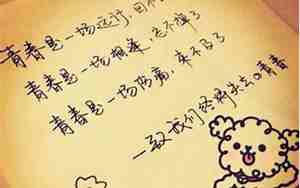 青春是一场远行，回不
青春是一场相逢，忘不掉了
青春是一场伤痛，来不及了
—致我们终将失去的青春